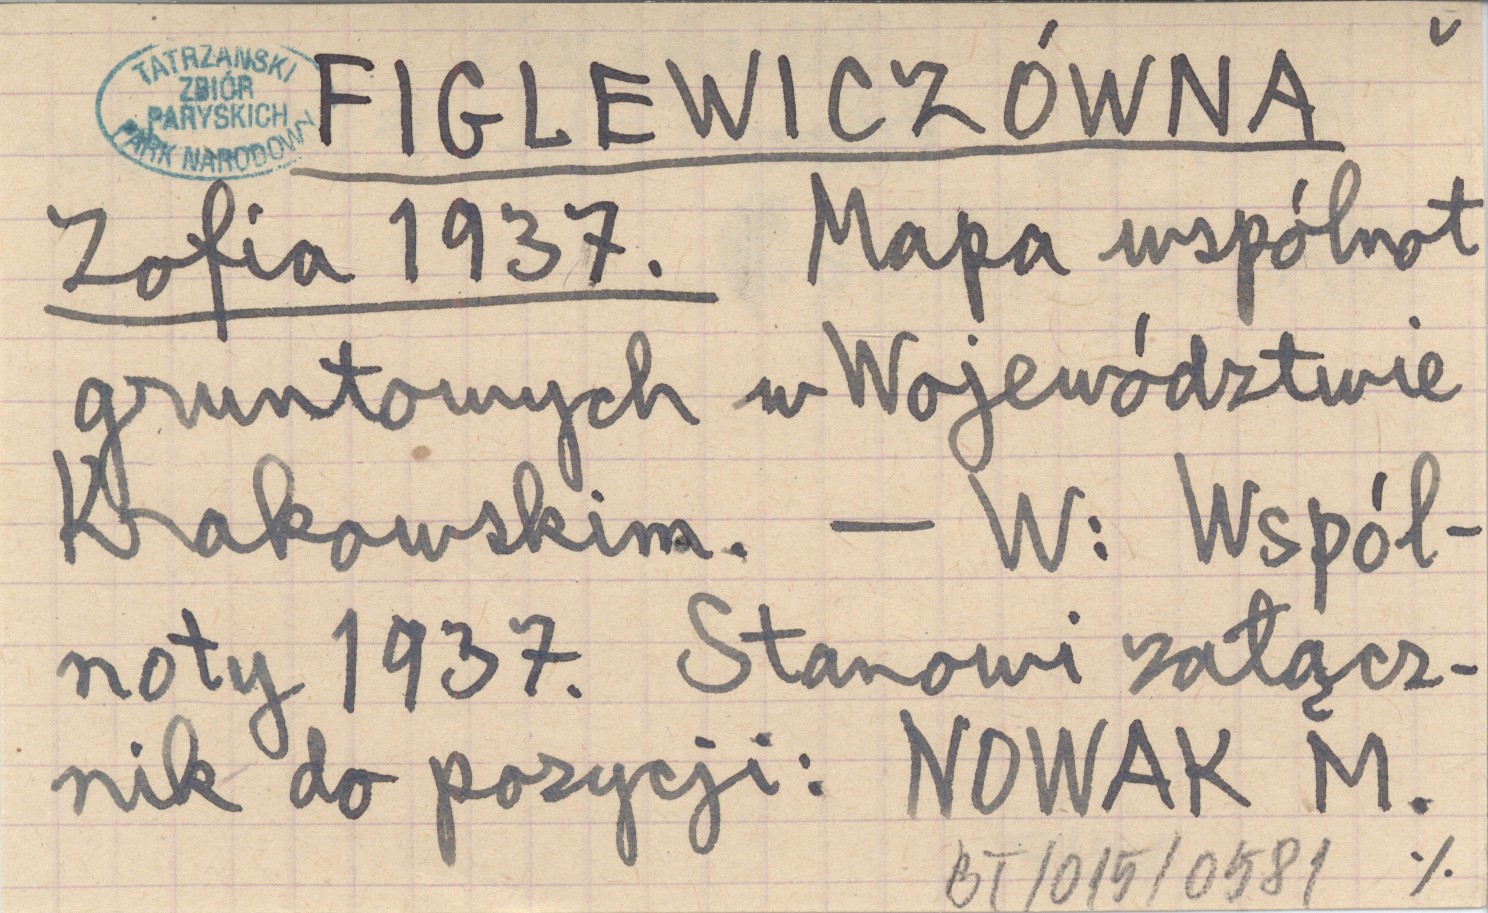 TATRZAŃSKI
ZBIÓR
PARYSKICH
PARK NARODOWY
FIGLEWICZÓWNA
Zofia 1937. Mapa wspólnot
gruntowych w Województwie
Krakowskim. — W: Wspól-
noty 1937. Stanowi załącz-
nik do pozycji: NOWAK M.
BT/015/0581 ./.